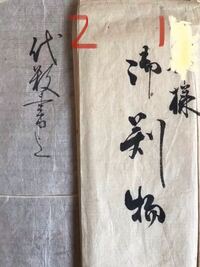 1
様
御判物
2
代数書之